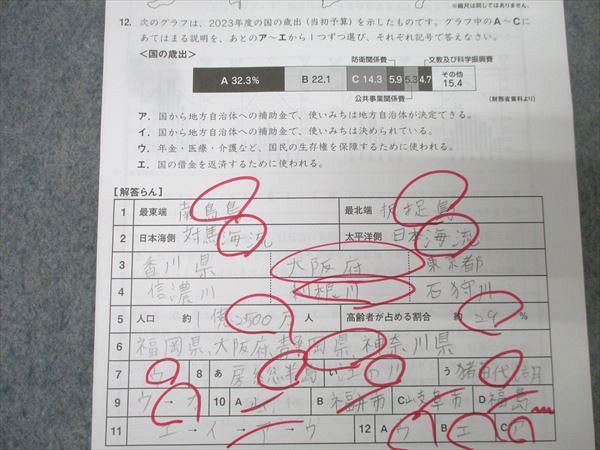 ※縮尺は同じではありません。
12. 次のグラフは、2023年度の国の歳出（当初予算）を示したものです。グラフ中のA～Cに
あてはまる説明を、あとのア～エから1つずつ選び、それぞれ記号で答えなさい。
＜国の歳出＞ 防衛関係費 文教及び科学振興費
A 32.3% B 22.1 C 14.3 5.9 5.3 4.7 その他 15.4
公共事業関係費 （財務省資料より）
ア．国から地方自治体への補助金で、使いみちは地方自治体が決定できる。
イ．国から地方自治体への補助金で、使いみちは決められている。
ウ．年金・医療・介護など、国民の生存権を保障するために使われる。
エ．国の借金を返済するために使われる。
【解答らん】
1 最東端 南鳥島 最北端 択捉島
2 日本海側 対馬海流 太平洋側 日本海流
3 香川県 大阪府 東京都
4 信濃川 利根川 石狩川
5 人口 約 1億2500万 人 高齢者が占める割合 約 29 %
6 福岡県、大阪府、静岡県、神奈川県
7 ウ 8 あ 房総半島 い 江の川 う 猪苗代湖
9 ウ → カ 10 A B 福井市 C 岐阜市 D 福島
11 エ → イ → ア → ウ 12 A ウ B エ C ア